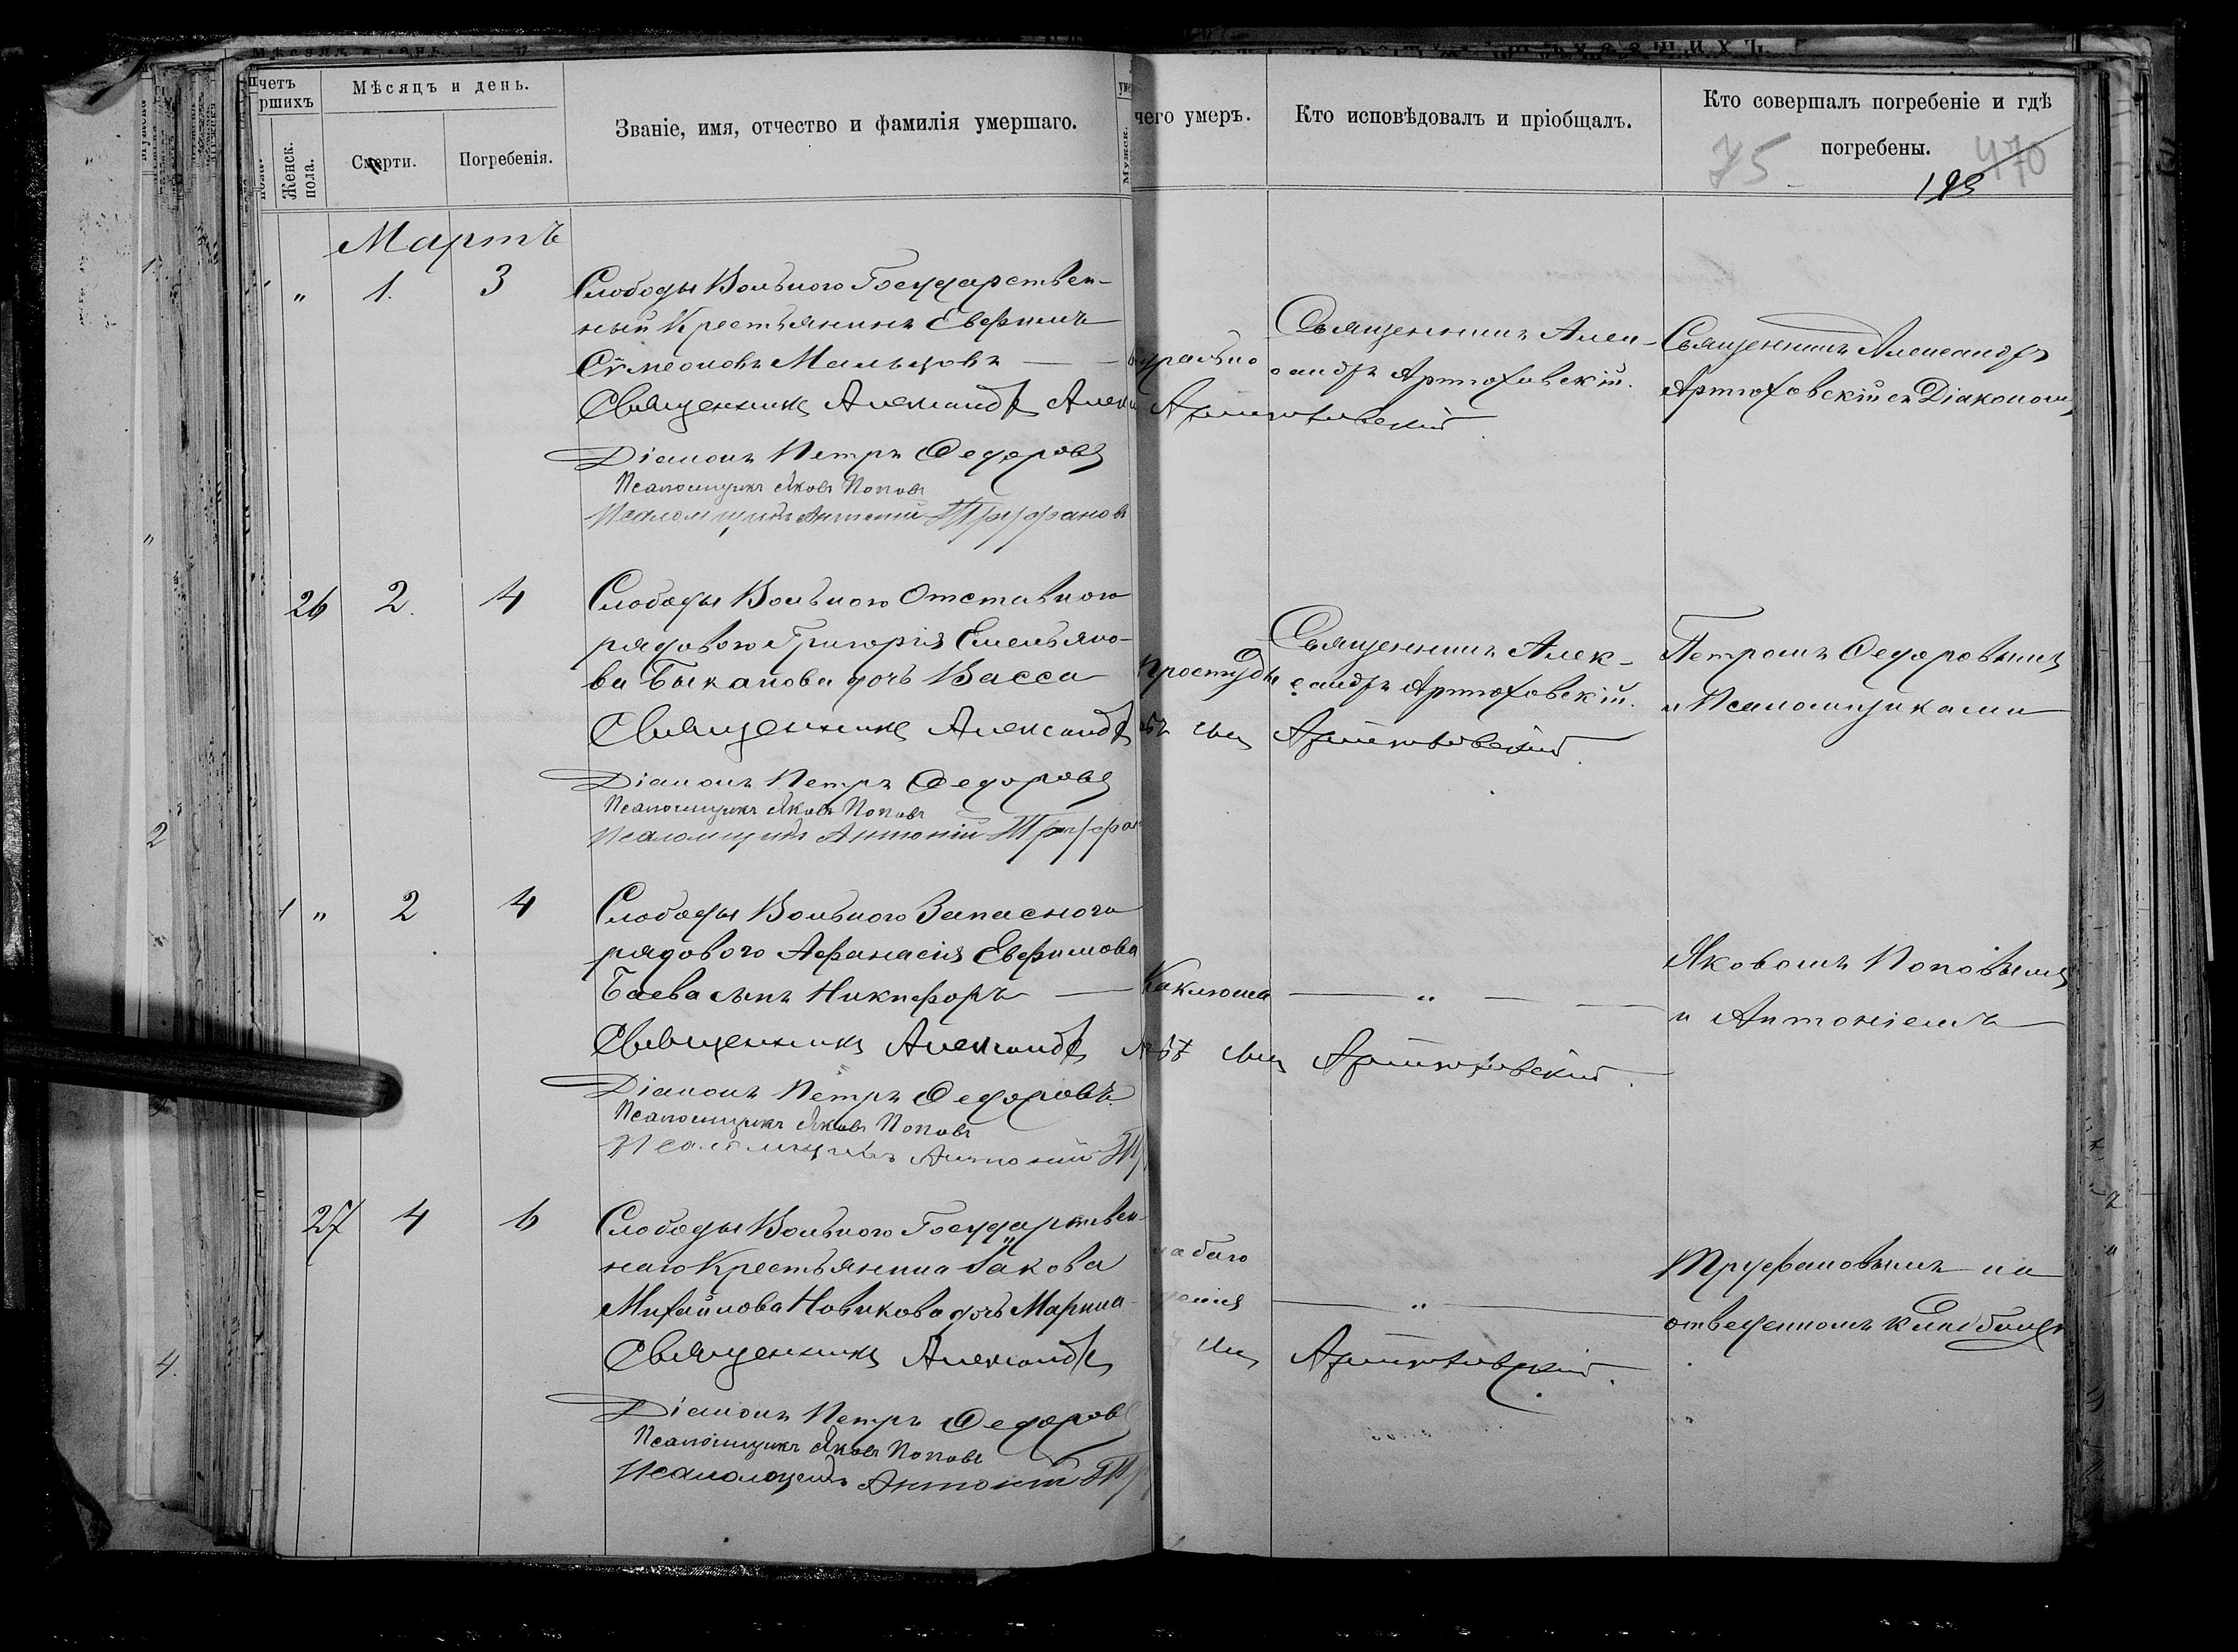 четъ
ршихъ
Мѣсяцъ и день.
Женск. пола.
Смерти.
Погребенія.
Званіе, имя, отчество и фамилія умершаго.
Мужск.
чего умеръ.
Кто исповѣдовалъ и пріобщалъ.
Кто совершалъ погребеніе и гдѣ
погребены.
75
470
195
Мартъ
" 1. 3
Слободы Вольного Государствен-
ный Крестьянинъ Евфимъ
Сѵмеоновъ Мальцовъ
Священникъ Александръ
Діаконъ Петръ Ѳедоровъ
Псаломщикъ Яковъ Поповъ
Псаломщикъ Антоній Труфановъ
Священникъ Алек-
сандръ Артюховскій.
Артюховскій
Священникъ Александръ
Артюховскій съ Діакономъ
26 2. 4
Слободы Вольного Отставного
рядового Григорія Емельяно-
ва Быканова дочь Васса
Священникъ Александръ
Діаконъ Петръ Ѳедоровъ
Псаломщикъ Яковъ Поповъ
Псаломщикъ Антоній
Простуды
Священникъ Алек-
сандръ Артюховскій.
Артюховскій.
Петромъ Ѳедоровымъ
и Псаломщиками
" 2 4
Слободы Вольного Запасного
рядового Афанасія Евфимова
Баева сынъ Никифоръ
Священникъ Александръ
Діаконъ Петръ Ѳедоровъ
Псаломщикъ Яковъ Поповъ
Псаломщикъ Антоній
Коклюша "
Артюховскій.
Яковомъ Поповымъ
и Антоніемъ
27 4 6
Слободы Вольного Государствен-
наго Крестьянина Іакова
Михайлова Новикова дочь Марина
Священникъ Александръ
Діаконъ Петръ Ѳедоровъ
Псаломщикъ Яковъ Поповъ
Псаломщикъ Антоній
"
Артюховскій.
Труфановымъ на
отведенномъ кладбищѣ